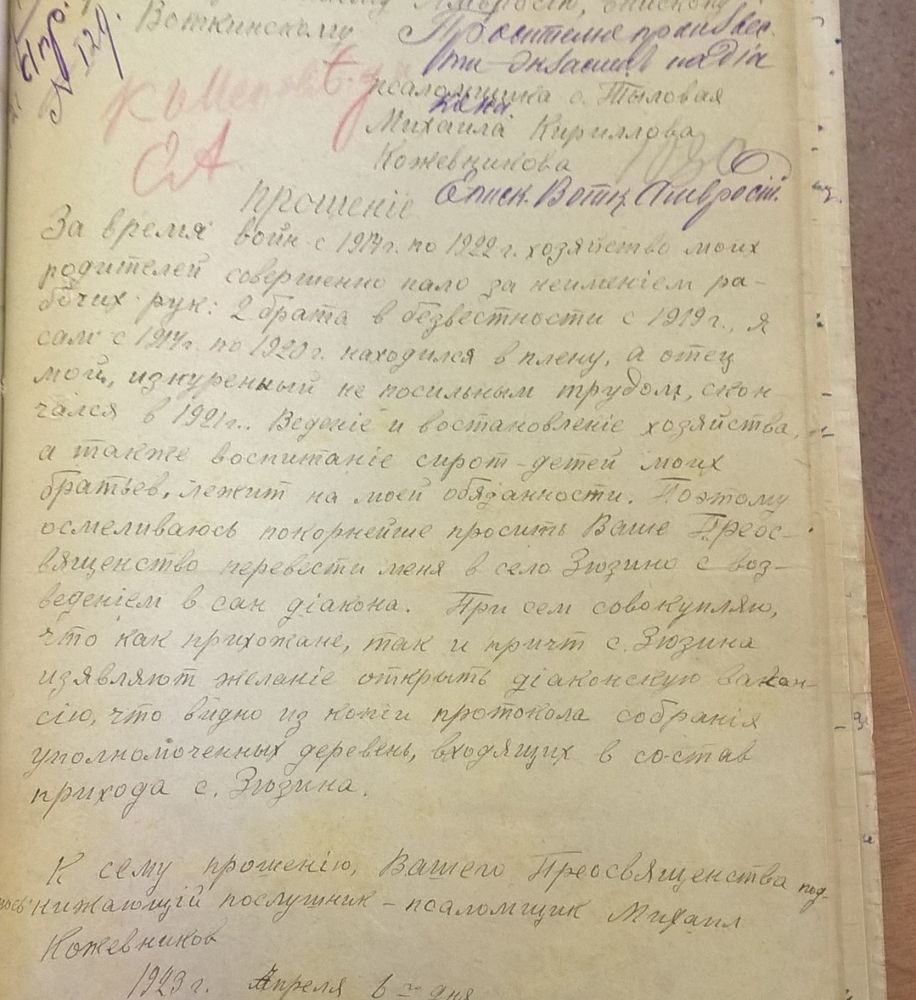 Амвросію, Епископу
Воткинскому
Просителя произвес-
ти на діа
кона
псаломщика с. Тыловая
Михаила Кириллова
Кожевникова
Прошеніе
Еписк. Вотк. Амвросій.
За время войн с 1914 г. по 1922 г. хозяйство моих
родителей совершенно пало за неименіем ра-
бочих рук: 2 брата в безвестности с 1919 г., я
сам с 1914 г. по 1920 г. находился в плену, а отец
мой, изнуренный не посильным трудом, скон-
чался в 1921 г.. Веденіе и востановленіе хозяйства,
а также воспитаніе сирот-детей моих
братьев, лежит на моей обязанности. Поэтому
осмеливаюсь покорнейше просить Ваше Преос-
вященство перевести меня в село Зюзино с воз-
веденіем в сан діакона. При сем совокупляю,
что как прихожане, так и причт с. Зюзина
изявляют желаніе открыть діаконскую вакан-
сію, что видно из копіи протокола собранія
уполномоченных деревень, входящих в состав
прихода с. Зюзина.
К сему прошенію, Вашего Преосвященства
нижающій послушник - псаломщик Михаил
Кожевников
1923 г. Апреля 6 го дня